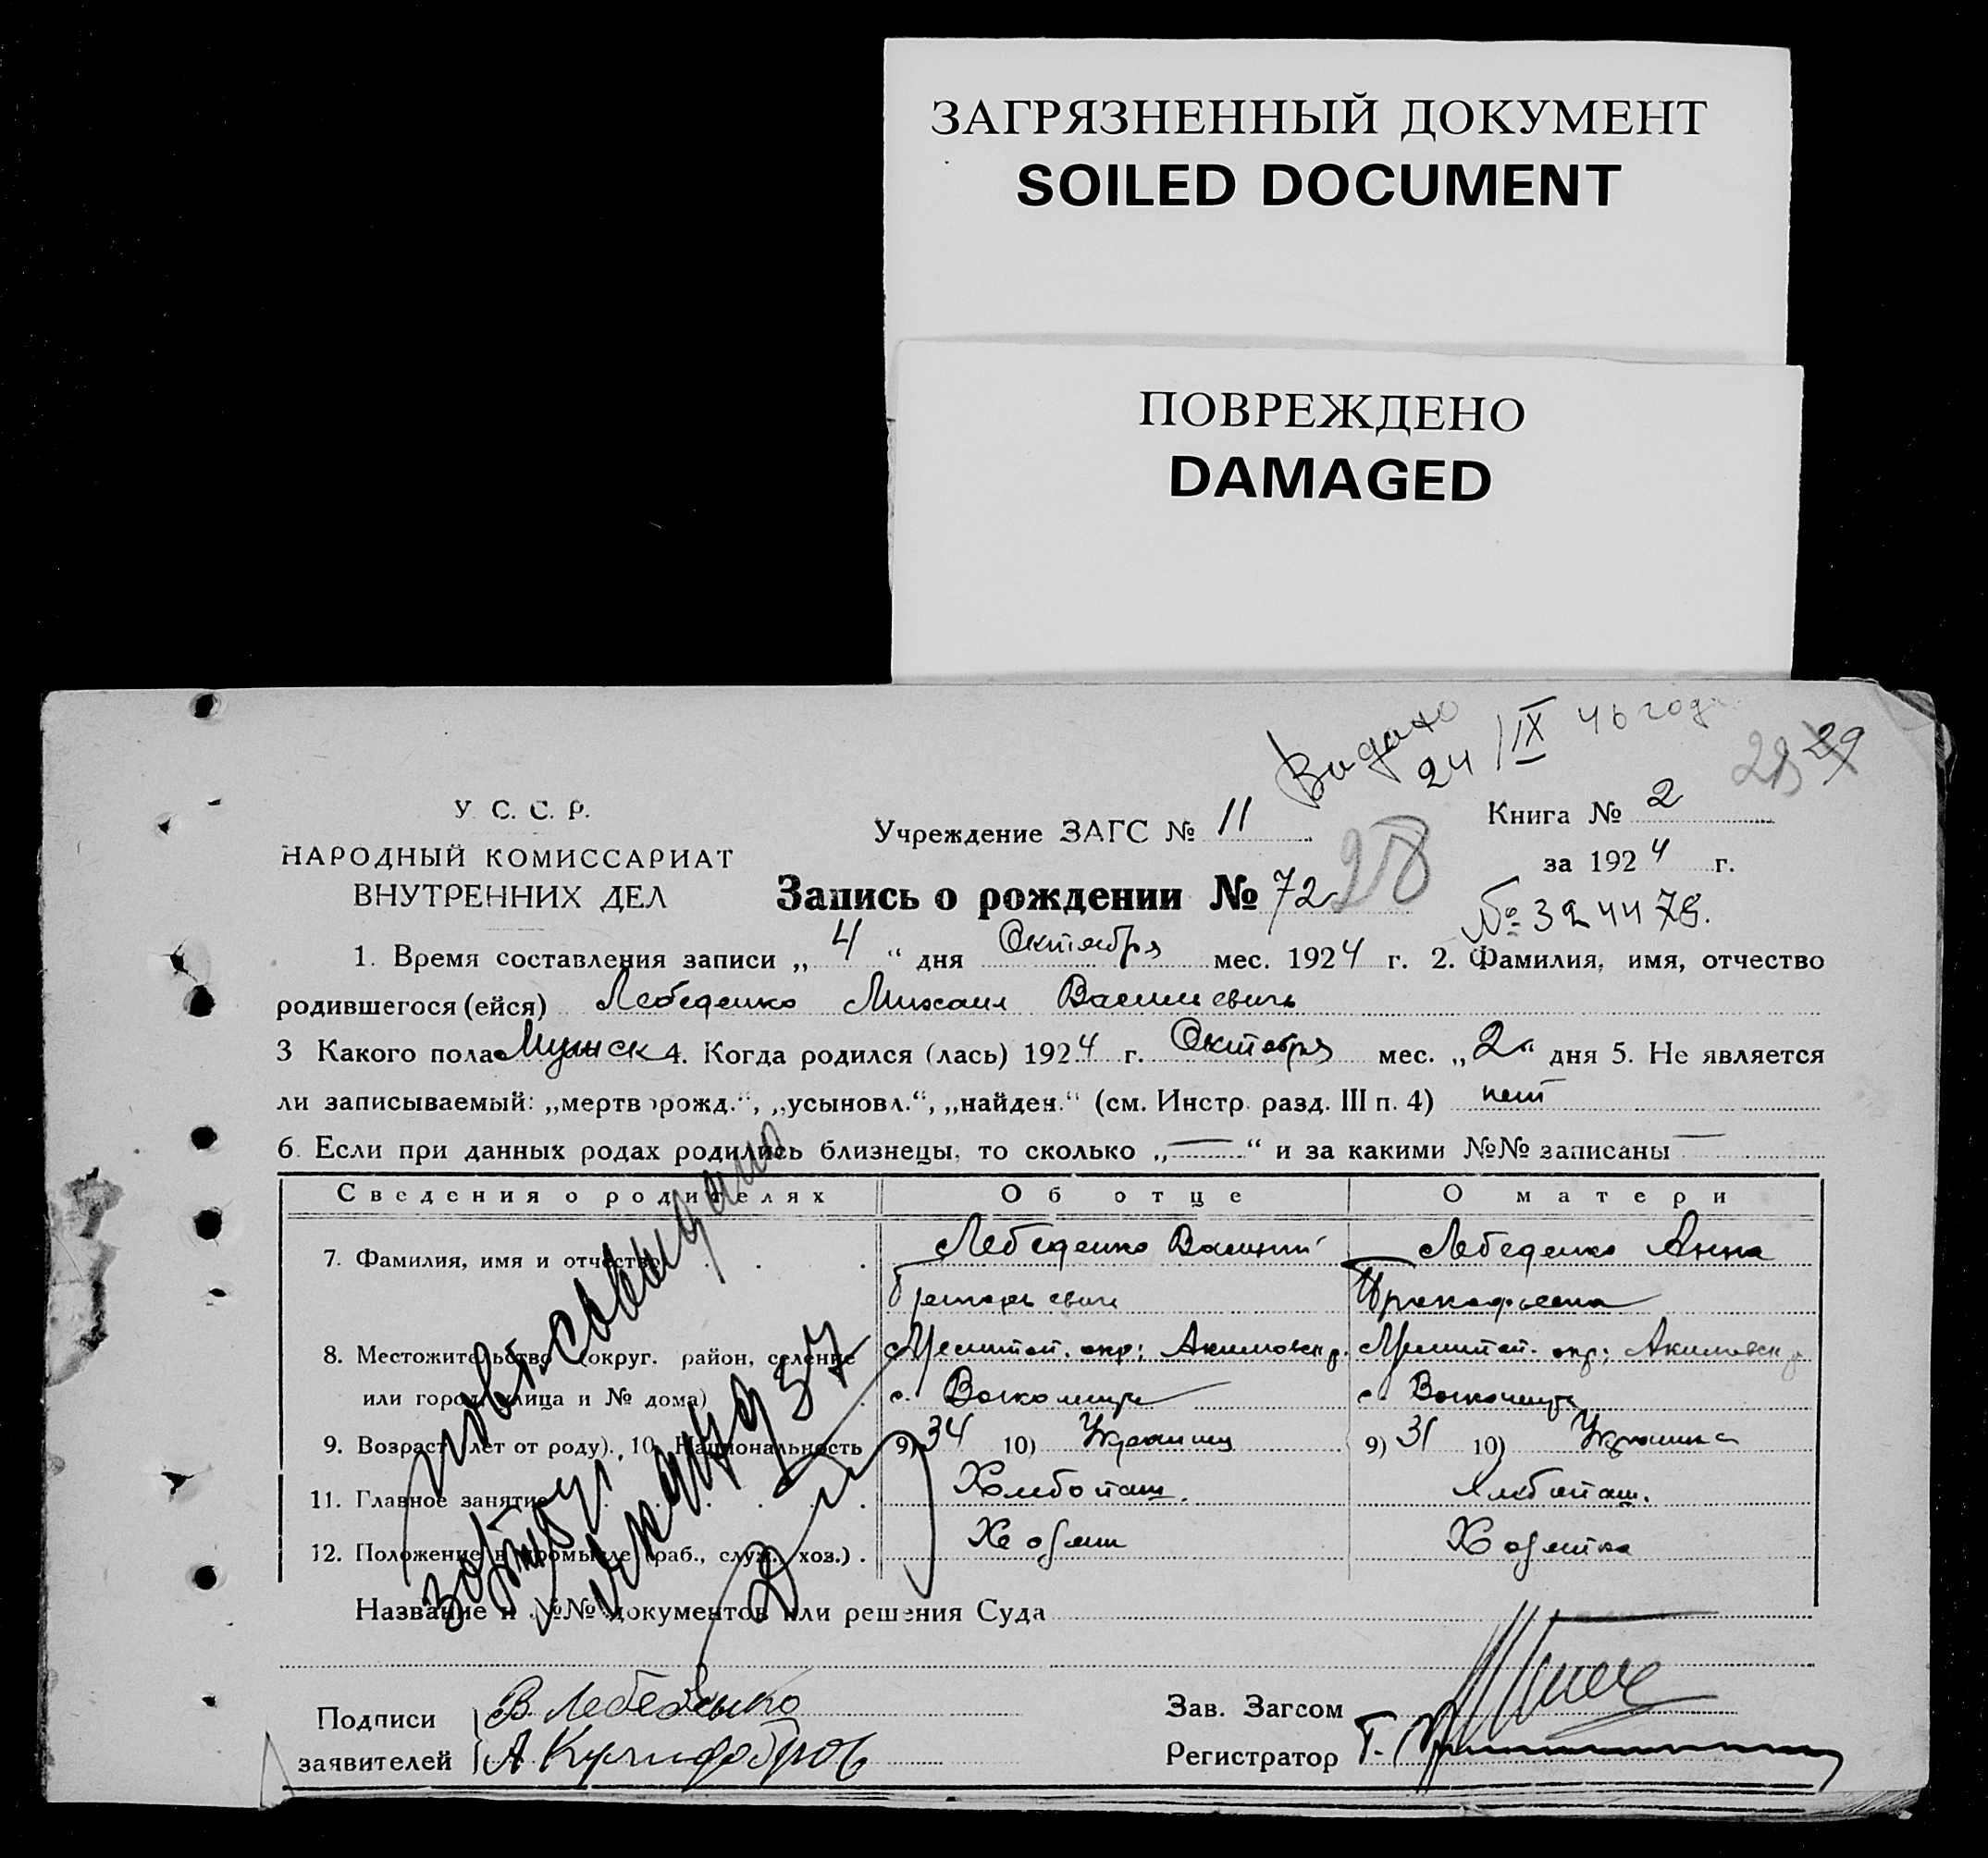 ЗАГРЯЗНЕННЫЙ ДОКУМЕНТ
SOILED DOCUMENT
ПОВРЕЖДЕНО
DAMAGED
Видано
24/IX 46 год
29
У. С. С. Р.
НАРОДНЫЙ КОМИССАРИАТ
ВНУТРЕННИХ ДЕЛ
Учреждение ЗАГС № 11
Книга № 2
за 1924 г.
Запись о рождении № 72
28
№ 324478.
1. Время составления записи „ 4 “ дня Октября мес. 1924 г. 2. Фамилия, имя, отчество
родившегося (ейся) Лебеденко Михаил Васильевичь
3 Какого пола Мужск 4. Когда родился (лась) 1924 г. Октября мес. „ 2 “ дня 5. Не является
ли записываемый: „мертворожд.“, „усыновл.“, „найден.“ (см. Инстр. разд. III п. 4) нет
6. Если при данных родах родились близнецы, то сколько „ — “ и за какими №№ записаны —
Сведения о родителях Об отце О матери
7. Фамилия, имя и отчество . . . Лебеденко Василий Лебеденко Анна
Григорьевич Прокофьевна
8. Местожительство (округ, район, селение Мелитоп. окр; Акимовск р. Мелитоп. окр; Акимовск р
или город, улица и № дома) с. с.
9. Возраст (лет от роду). 10. Национальность 9) 34 10) Украинец 9) 31 10) Украинка
11. Главное занятие . . . . Хлебопаш. Хлебопаш.
12. Положение в промысле (раб., служ., хоз.) . Хозяин Хозяйка
Название и №№ документов или решения Суда
Подписи В Лебеденко
заявителей А
Зав. Загсом
Регистратор Г.